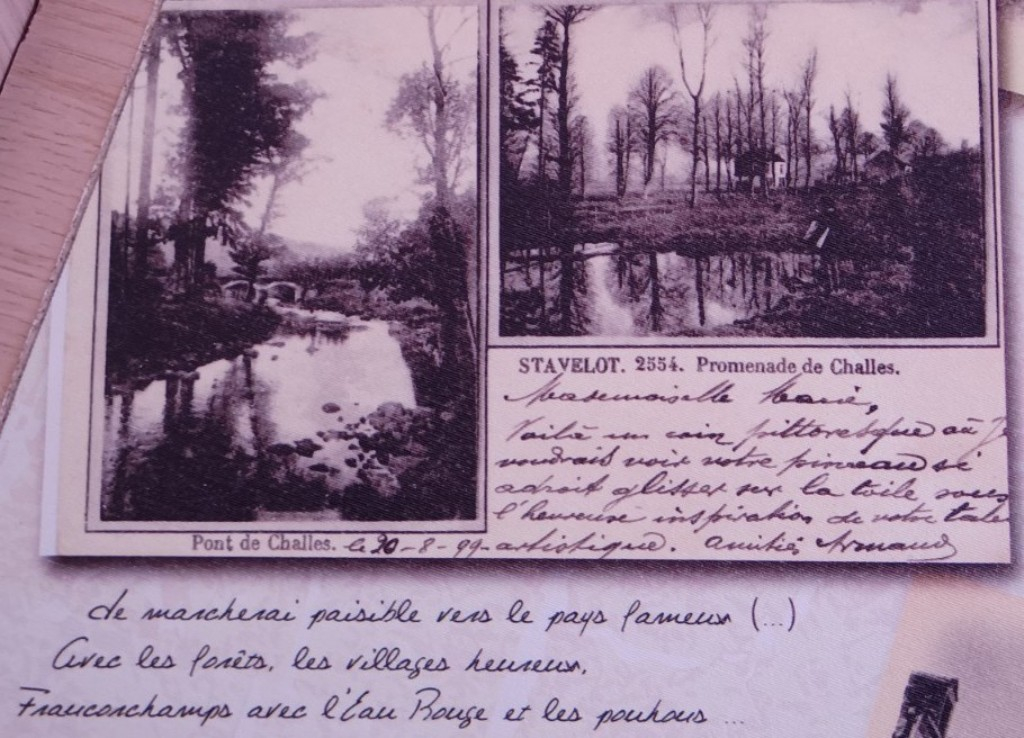 STAVELOT. 2554. Promenade de Challes.
Mademoiselle Marie,
Voilà un coin pittoresque où je
voudrais voir votre pinceau si
adroit glisser sur la toile sous
l'heureuse inspiration de votre talent
Pont de Challes. le 20-8-99 - artistique. Amitiés Armand
Je marcherai paisible vers le pays fameux (...)
Avec les forêts, les villages heureux,
Francorchamps avec l'Eau Rouge et les pouhons ...